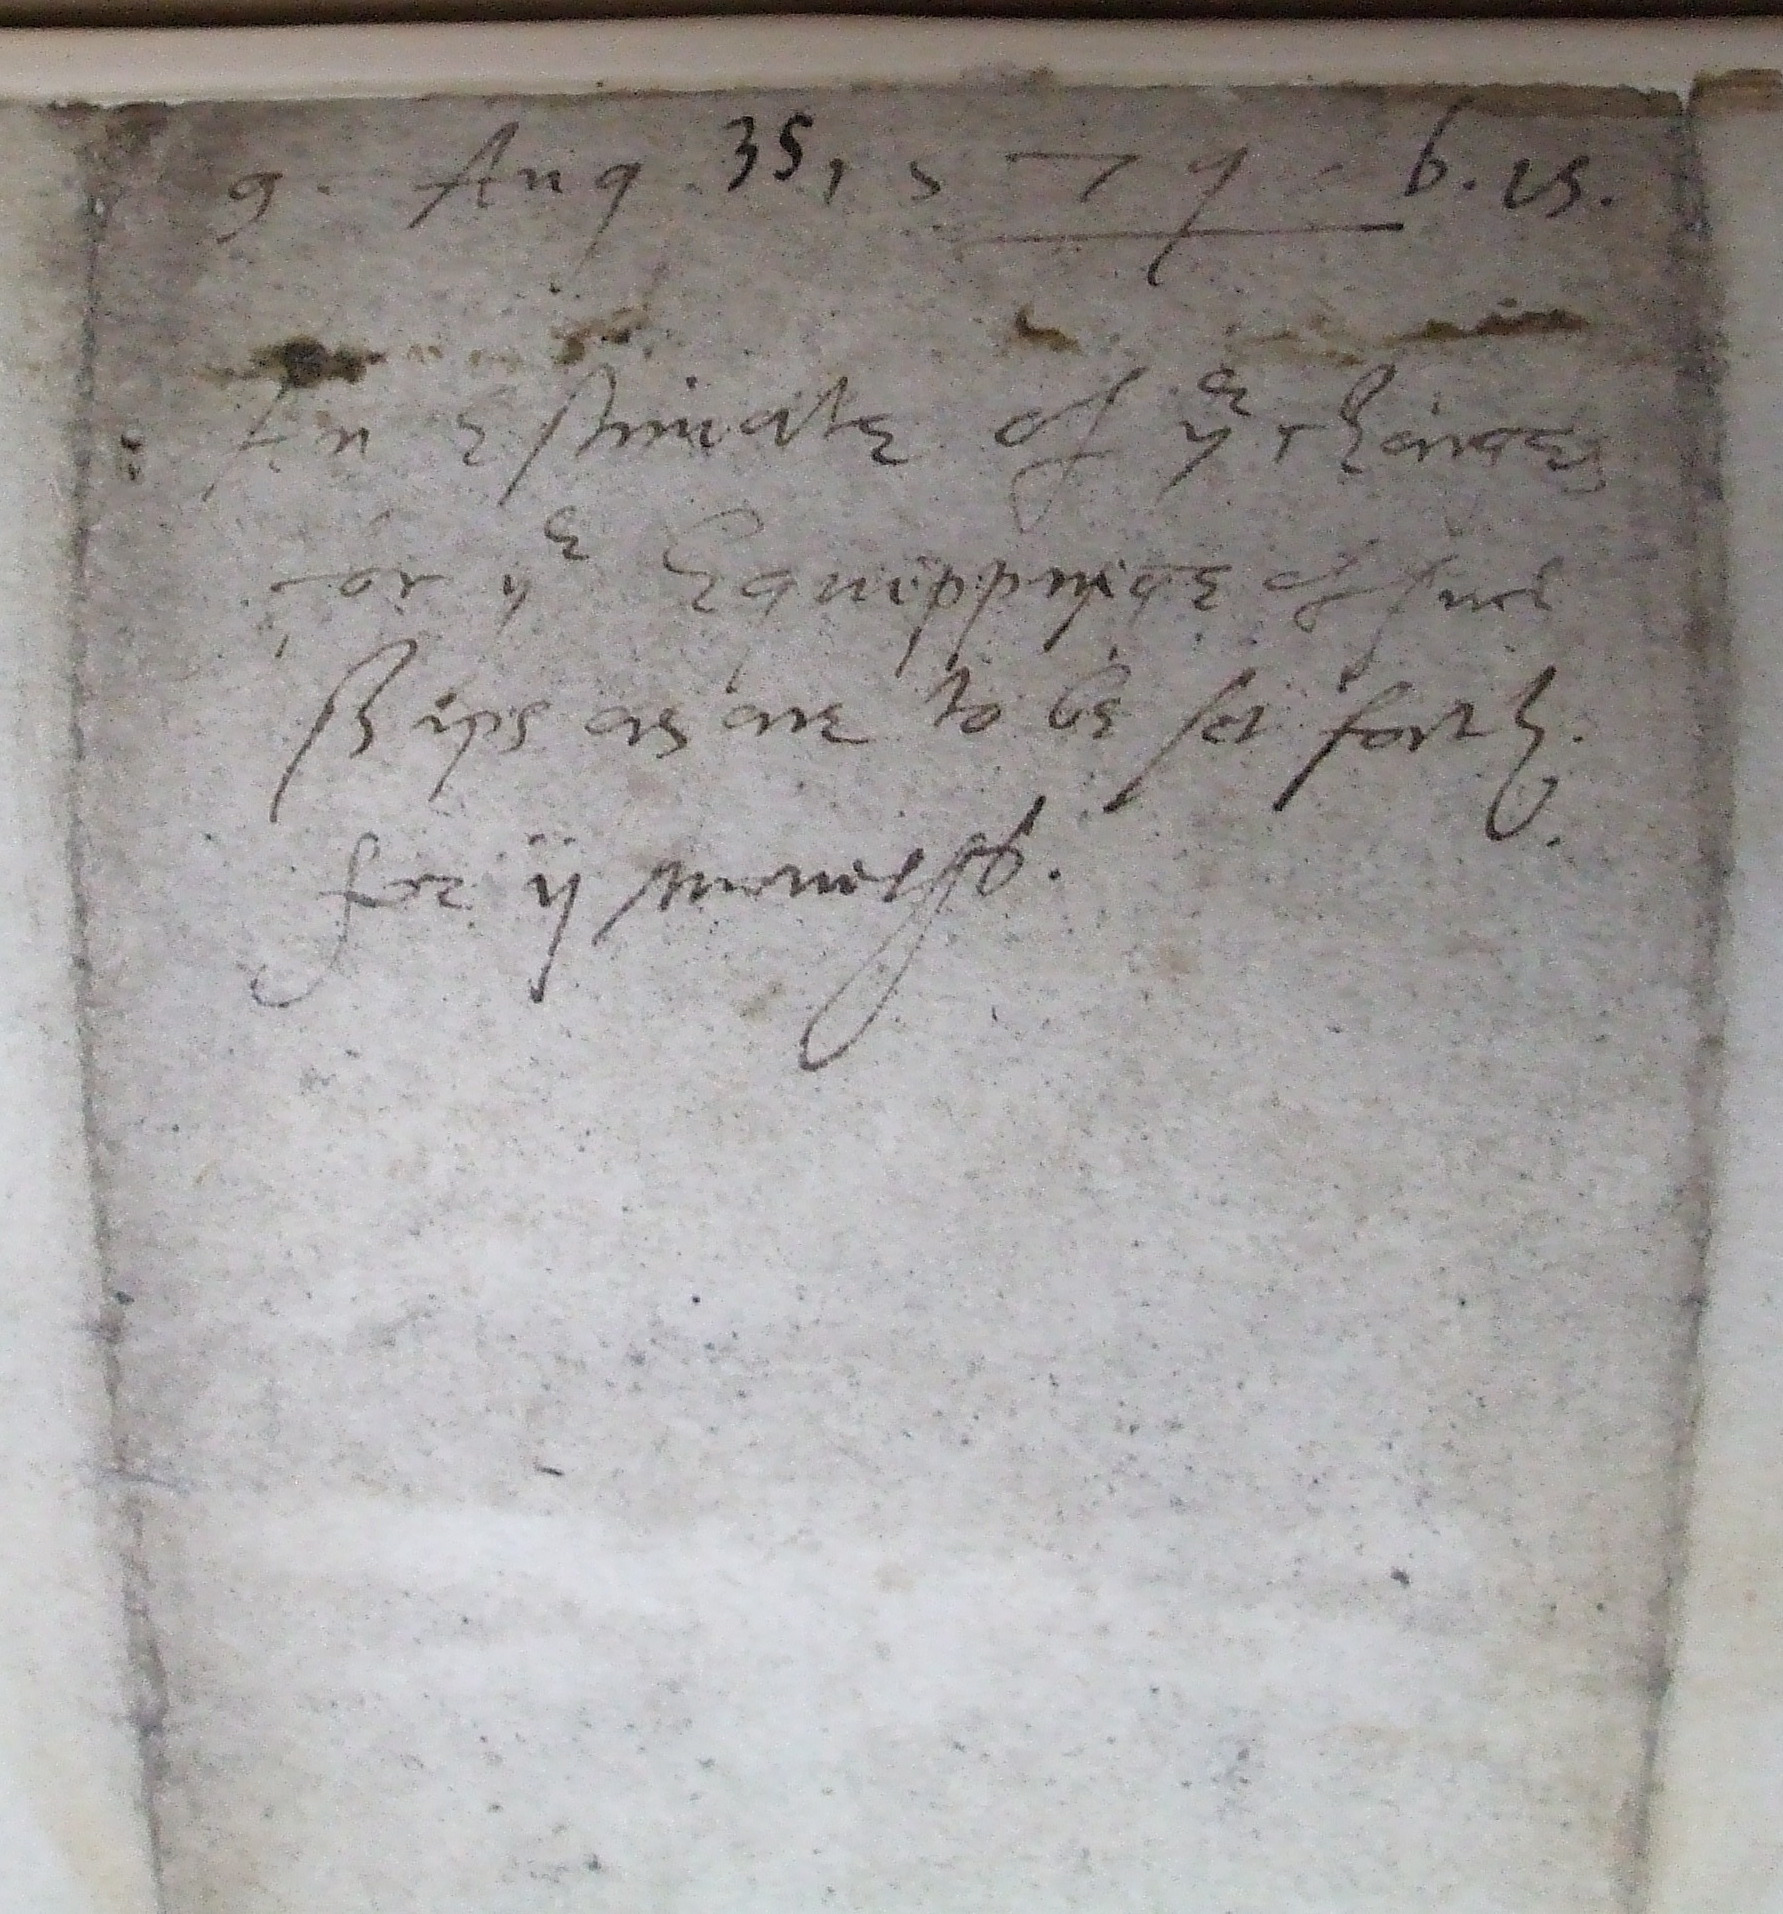 9. Aug 35,
An Estimate of yͤ Charge
for yͤ Equippinge of such
Ships as are to be set forth.
for ij moneths.